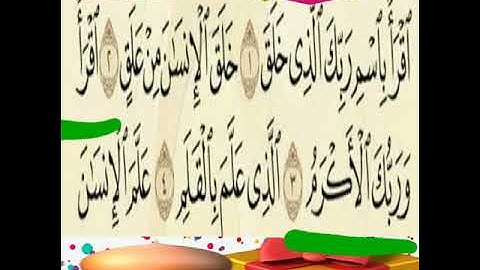 ٱقْرَأْ بِٱسْمِ رَبِّكَ ٱلَّذِى خَلَقَ ١ خَلَقَ ٱلْإِنسَٰنَ مِنْ عَلَقٍ ٢ ٱقْرَأْ
وَرَبُّكَ ٱلْأَكْرَمُ ٣ ٱلَّذِى عَلَّمَ بِٱلْقَلَمِ ٤ عَلَّمَ ٱلْإِنسَٰنَ